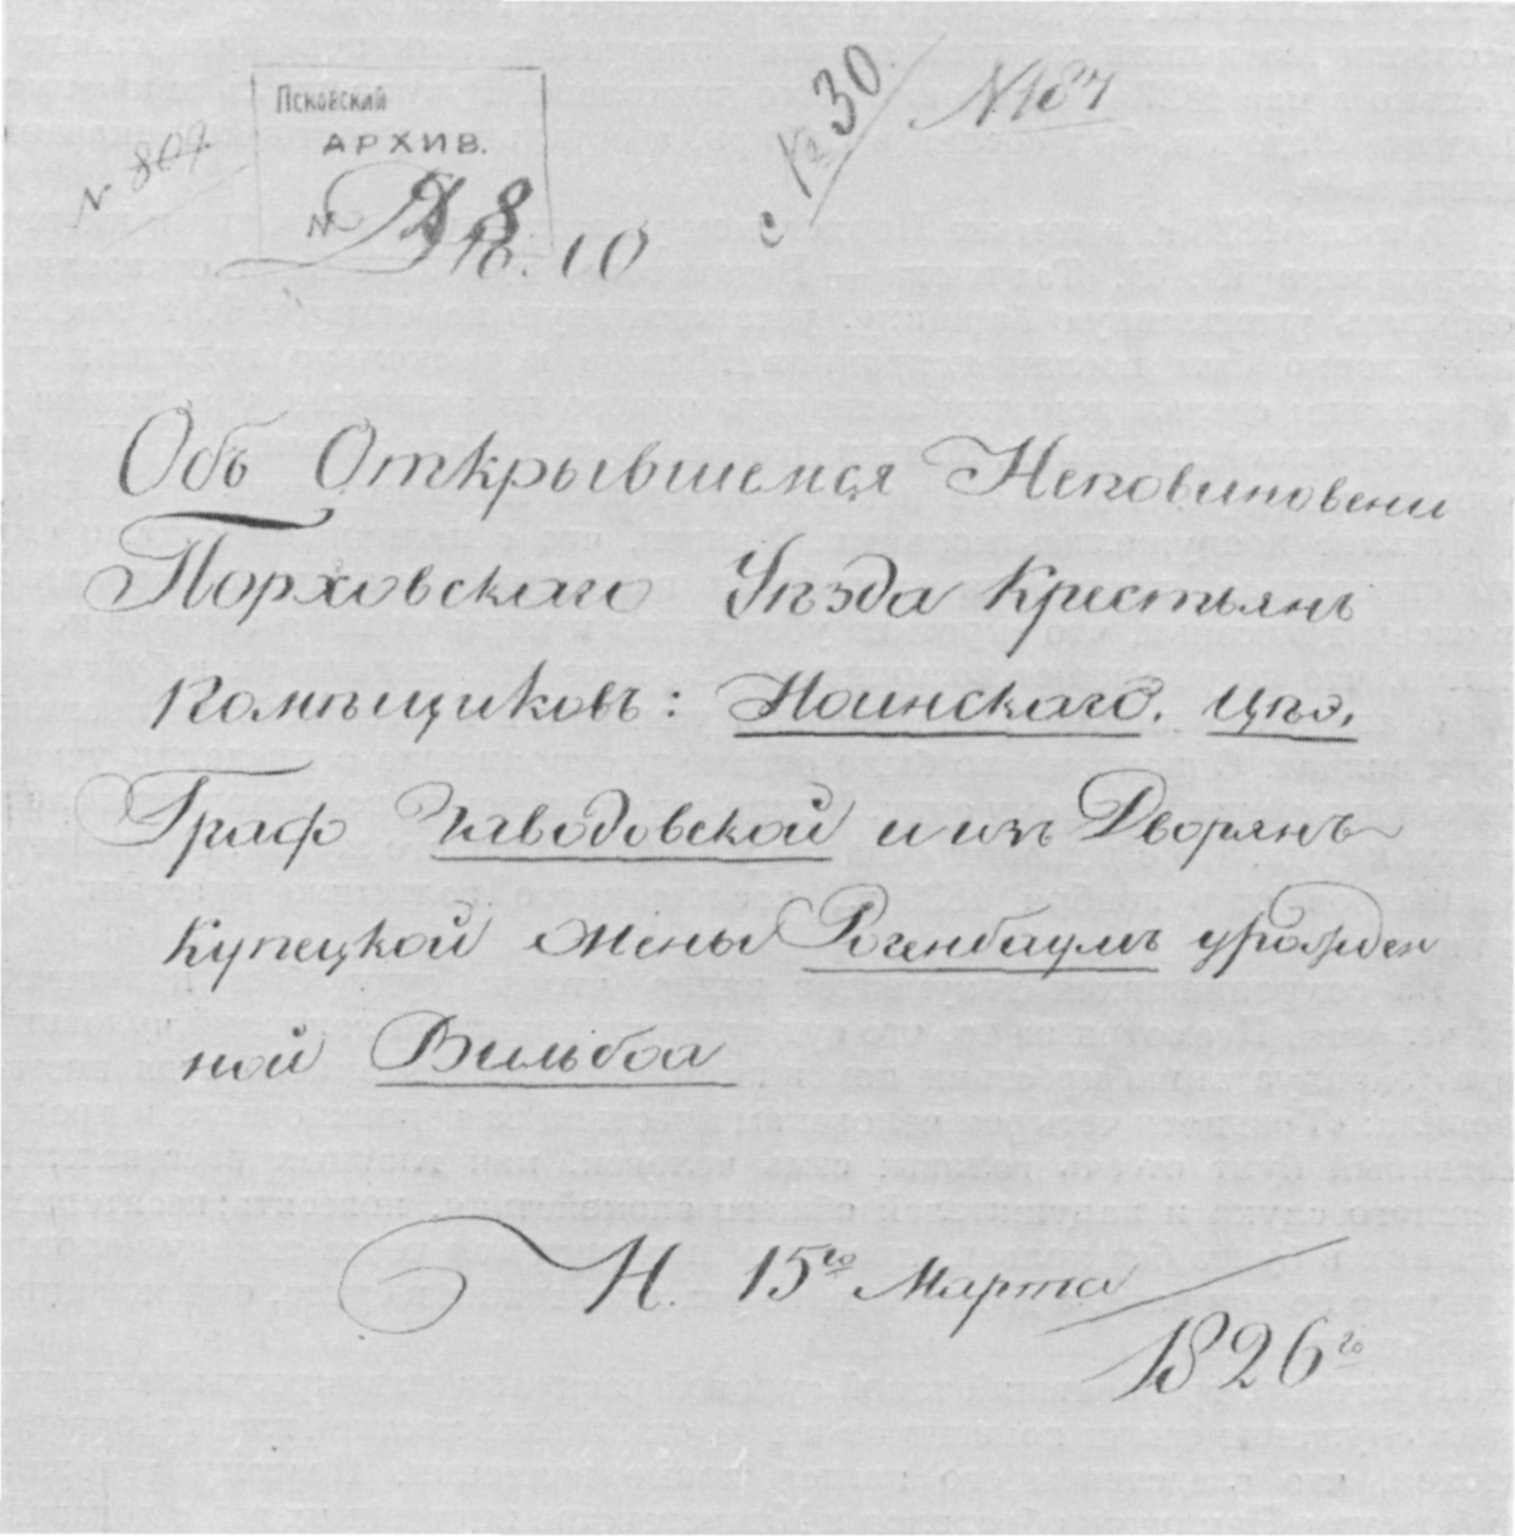 Псковский
АРХИВ.
№ 30
№ 187
Объ Открывшемся Неповиновени
Порховскаго Уѣзда Крестьянъ
помѣщиковъ: Ноинскаго. Цѣэ.
Граф Заводовской и изъ Дворянъ
Купецкой жены Розенбаумъ урожден
ной Вильбоа
Н. 15го Марта
1826го